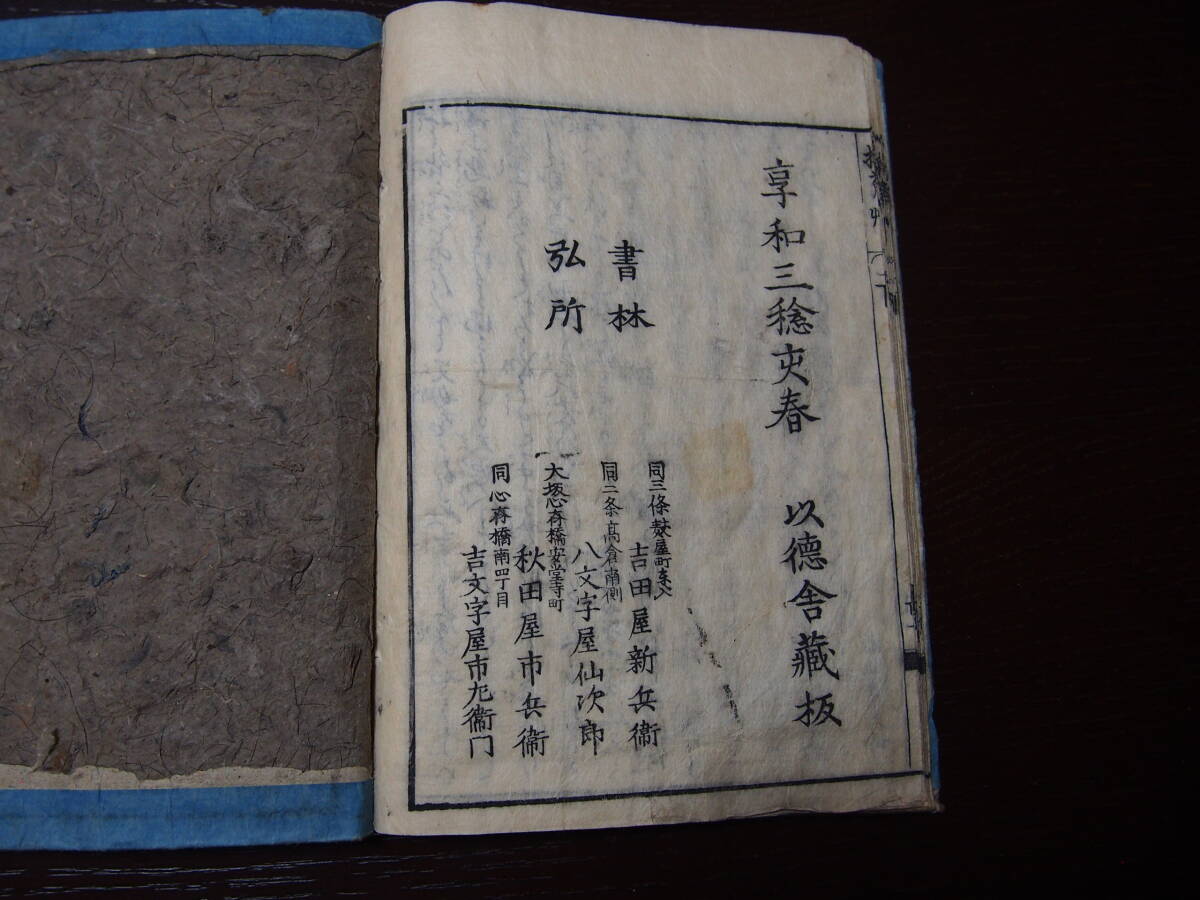 享和三稔亥春 以德舎藏板
書林
弘所
同三條麩屋町東入
吉田屋新兵衞
同二条高倉南側
八文字屋仙次郎
大坂心斎橋安堂寺町
秋田屋市兵衞
同心斎橋南四丁目
吉文字屋市左衞门